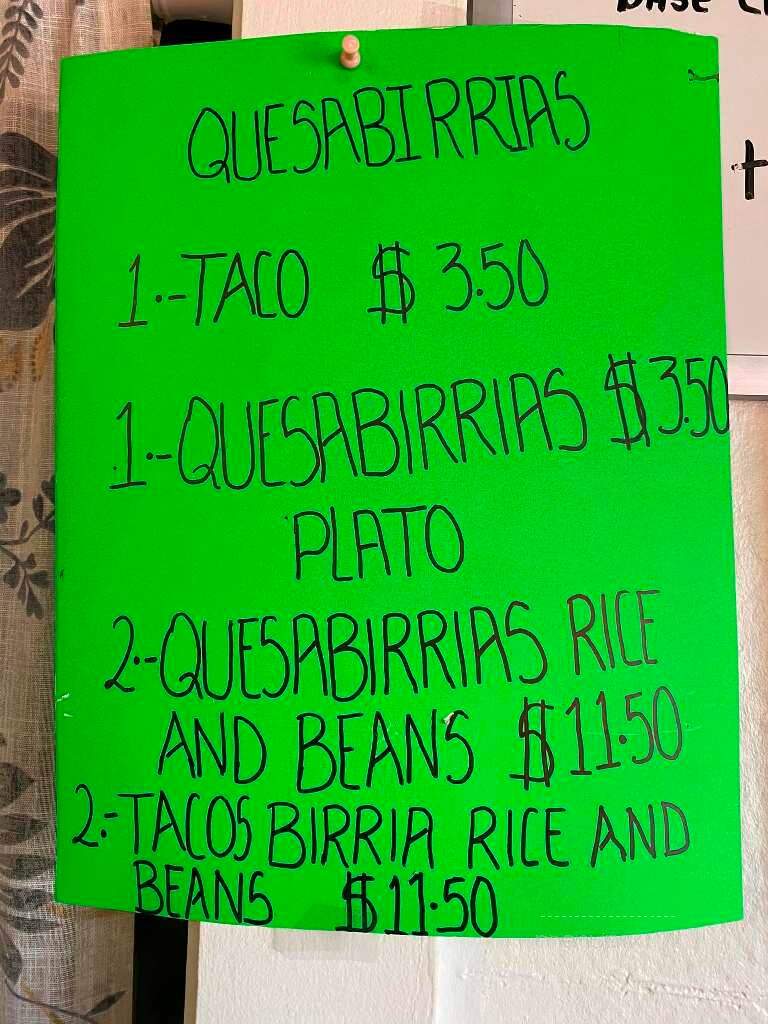 QUESABIRRIAS
1.-TACO $ 3.50
1.-QUESABIRRIAS $3.50
PLATO
2.-QUESABIRRIAS RICE
AND BEANS $11.50
2.-TACOS BIRRIA RICE AND
BEANS $11.50